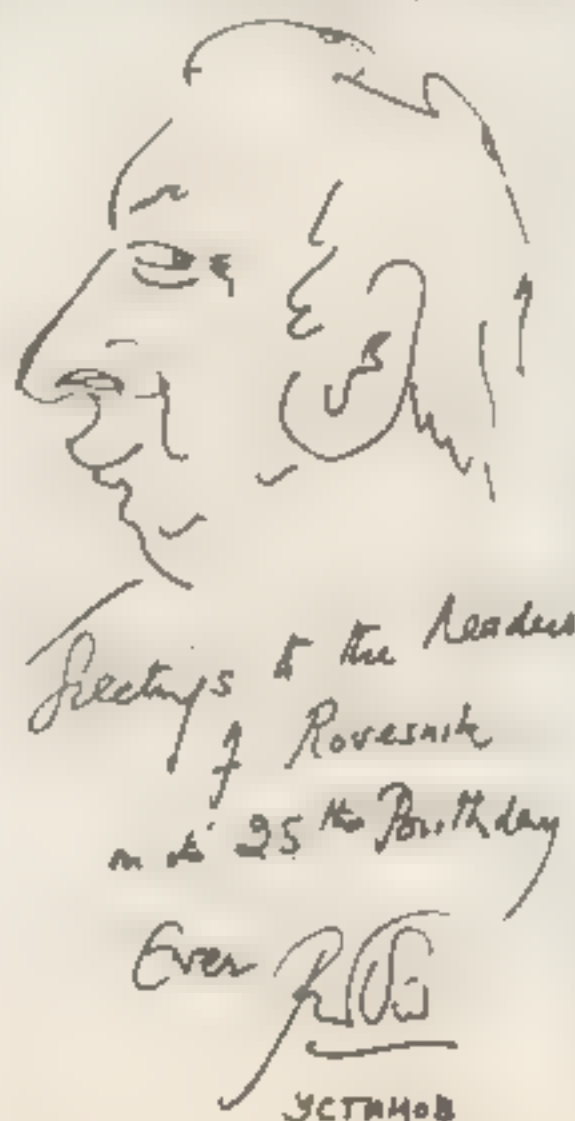 Greetings to the Readers
of Rovesnik
on its 25th Birthday
Ever
УСТИНОВ